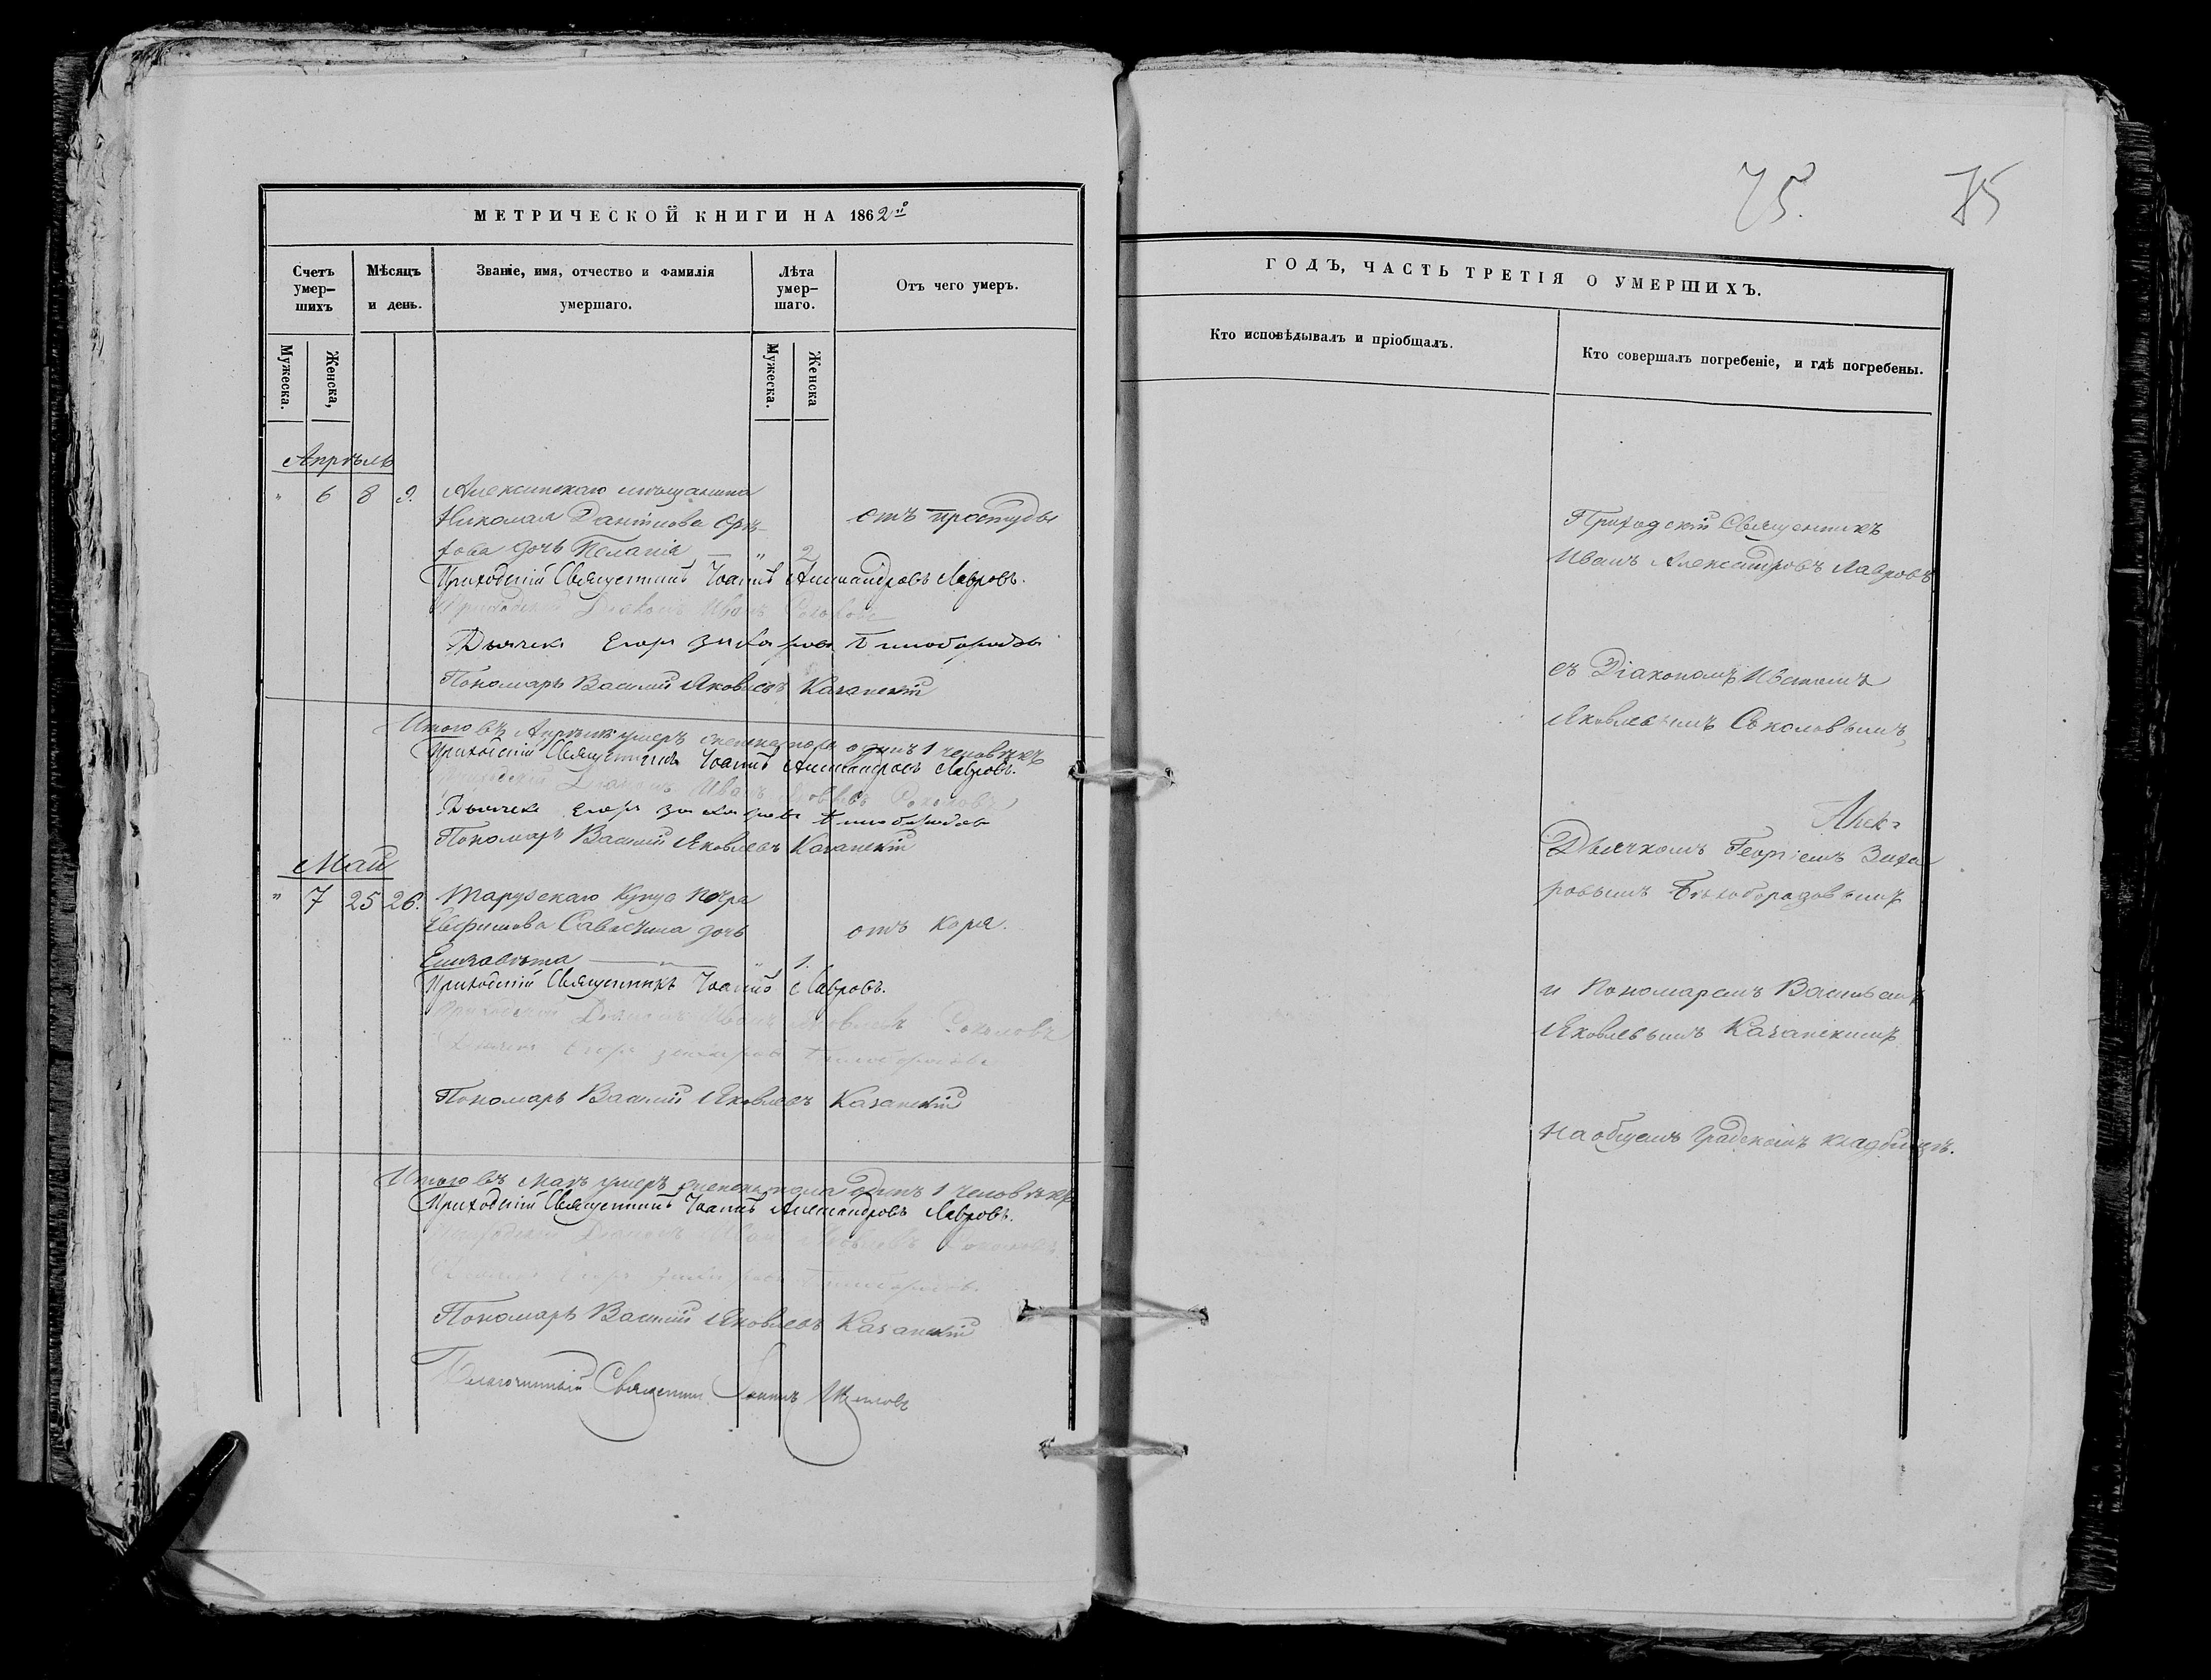 МЕТРИЧЕСКОЙ КНИГИ НА 1862й
Счетъ умер- шихъ
Мѣсяцъ и день.
Званіе, имя, отчество и фамилія умершаго.
Лѣта умер- шаго.
Отъ чего умеръ.
Мужеска.
Женска,
Мужеска.
Женска
Апрѣль
" 6 8 9. Алексинскаго мѣщанина
Николая Даніилова Орѣ- отъ простуды
хова дочь Пелагія — " 2
Приходскій Священникъ Іоаннъ Александровъ Лавровъ.
Приходскій Діаконъ Иванъ Соколовъ
Дьячекъ Егоръ Захаровъ Бѣлобородовъ
Пономарь Василій Яковлевъ Казанскій
Итого въ Апрѣлѣ умеръ женска пола одинъ 1 человѣкъ
Приходскій Священникъ Іоаннъ Александровъ Лавровъ.
Приходскій Діаконъ Иванъ Яковлевъ Соколовъ
Дьячекъ Егоръ Захаровъ Бѣлобородовъ
Пономарь Василій Яковлевъ Казанскій
Май
" 7 25 26. Тарускаго Купца Петра
Евфимова Савостина дочь отъ коря.
Елизавета — " — " 1.
Приходскій Священникъ Іоаннъ Лавровъ.
Приходскій Діаконъ Иванъ Яковлевъ Соколовъ
Дьячекъ Егоръ Захаровъ Бѣлобородовъ
Пономарь Василій Яковлевъ Казанскій
Итого въ Маѣ умеръ женска пола одинъ 1 человѣкъ
Приходскій Священникъ Іоаннъ Александровъ Лавровъ.
Приходскій Діаконъ Иванъ Яковлевъ Соколовъ
Дьячекъ Егоръ Захаровъ Бѣлобородовъ
Пономарь Василій Яковлевъ Казанскій
Благочинный Священникъ Іоаннъ
75. 75
ГОДЪ, ЧАСТЬ ТРЕТІЯ О УМЕРШИХЪ.
Кто исповѣдывалъ и пріобщалъ.
Кто совершалъ погребеніе, и гдѣ погребены.
Приходскій Священникъ
Иванъ Александровъ Лавровъ
съ Діакономъ Иваномъ
Яковлевымъ Соколовымъ,
Алек-
Дьячкомъ Георгіемъ Заха
ровымъ Бѣлобородовымъ
и Пономаремъ Васильемъ
Яковлевымъ Казанскимъ
На общемъ Градскомъ кладбищѣ.